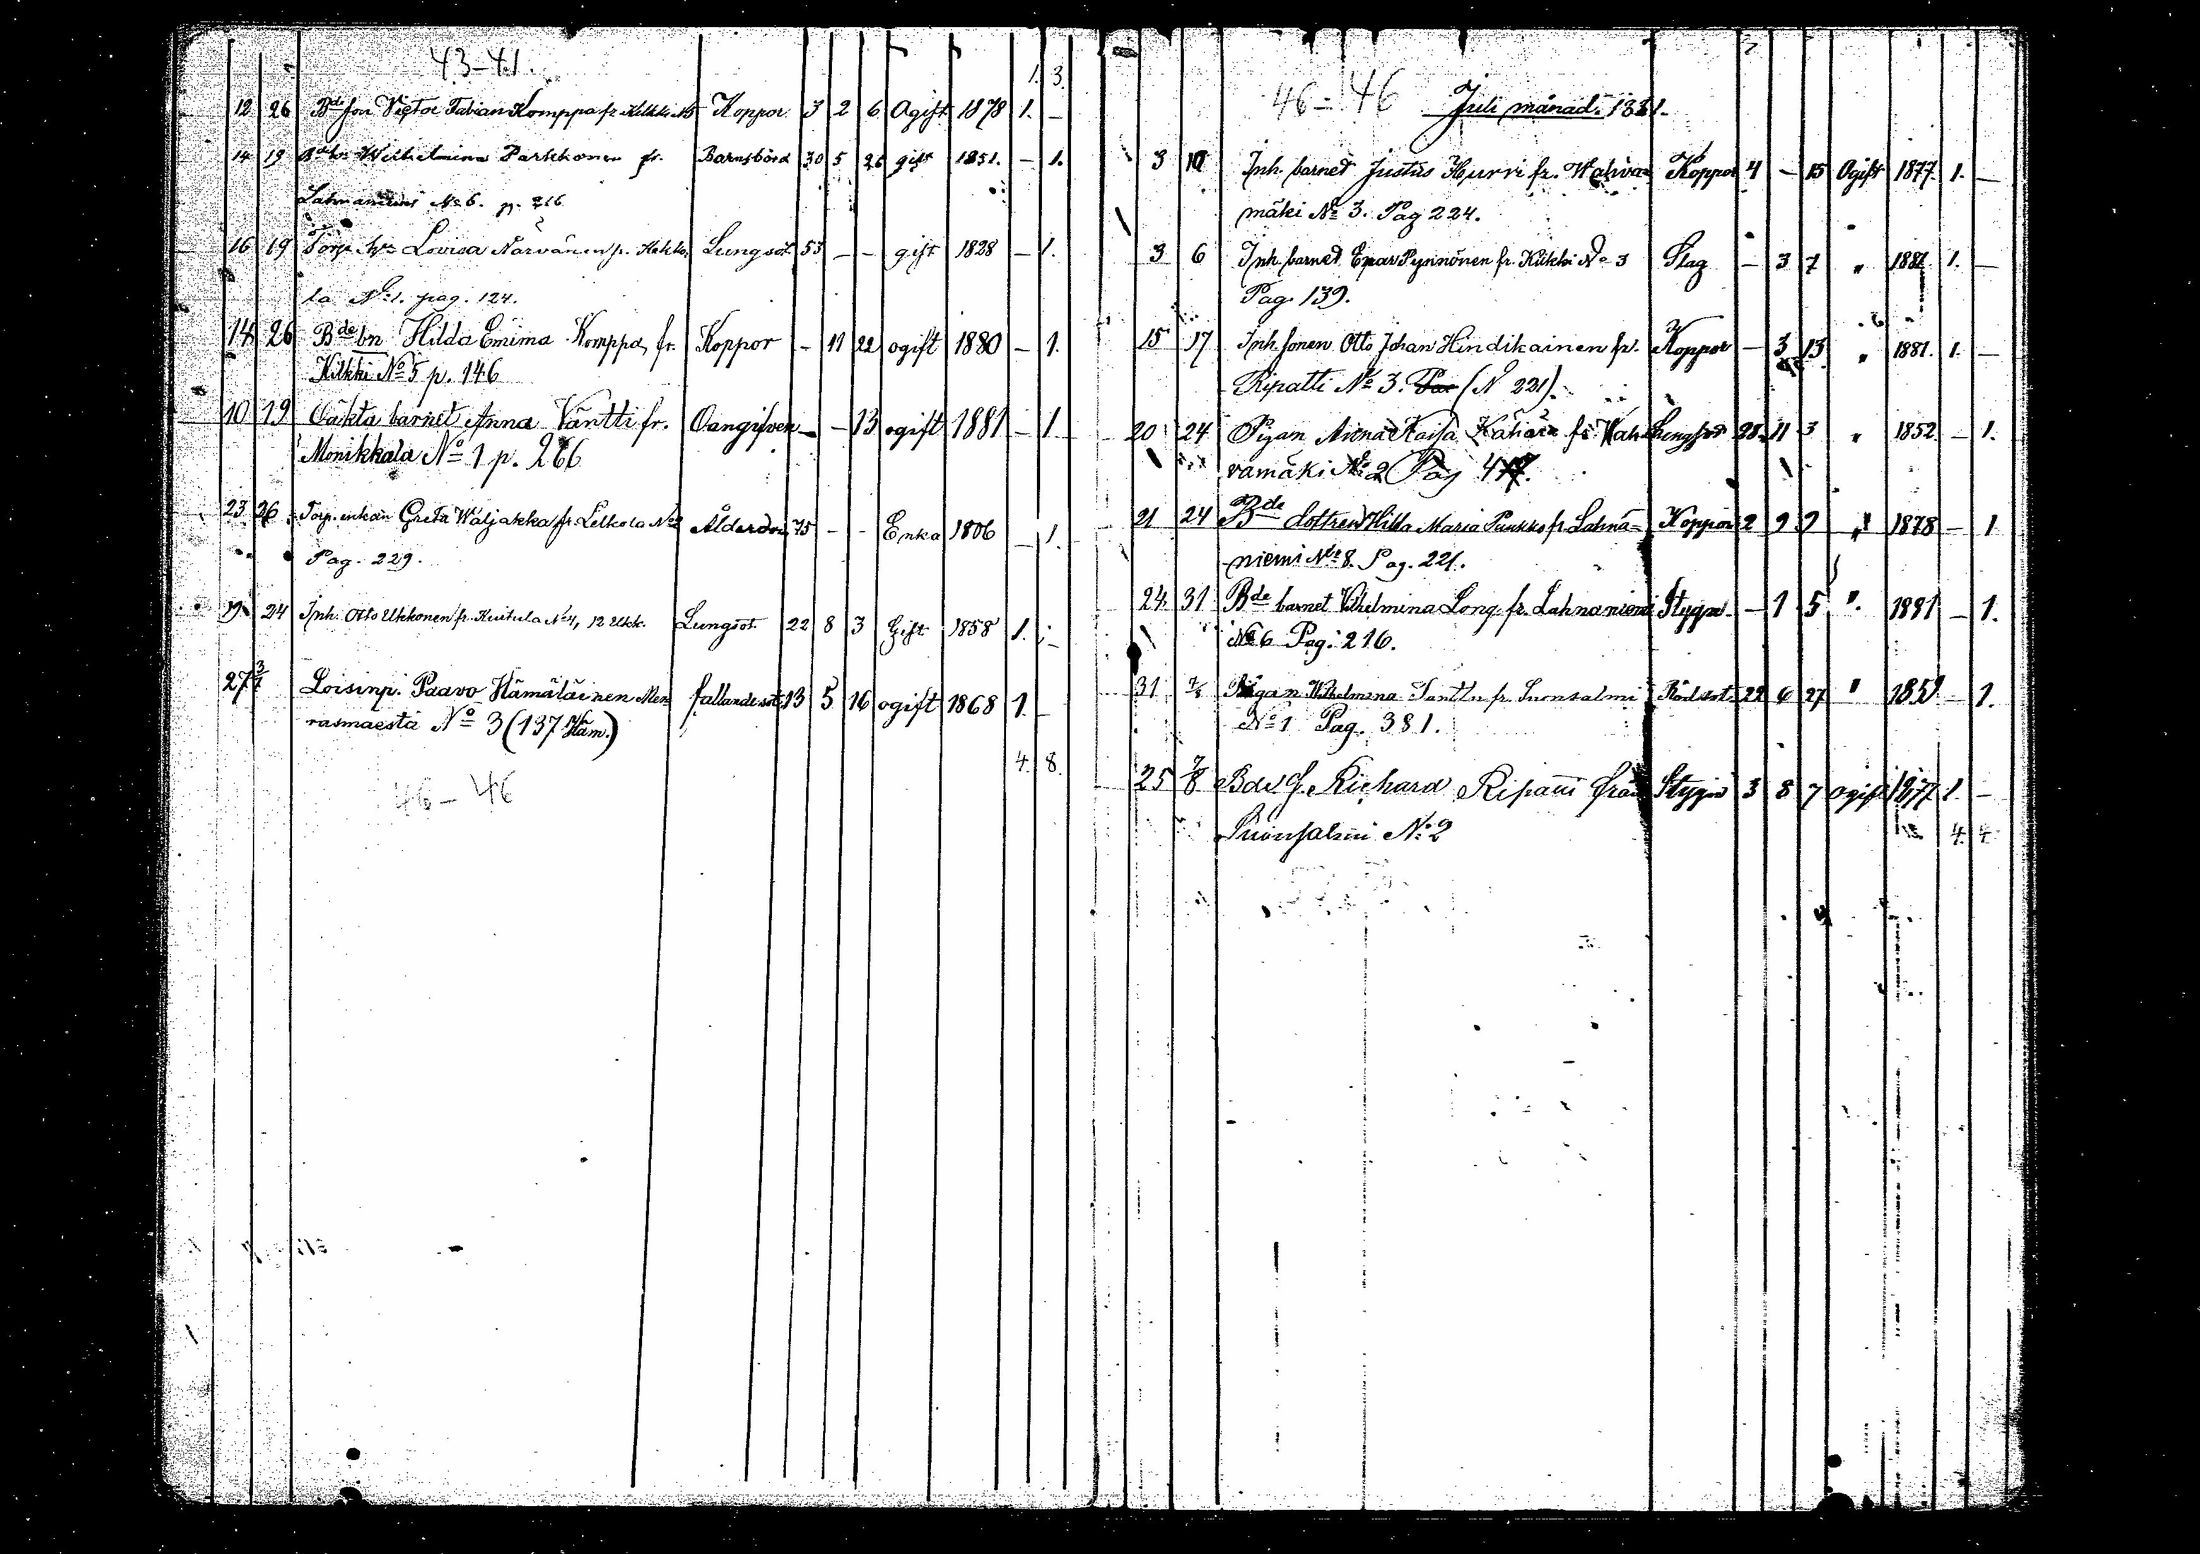 43-41.
1. 3.
12 26 Bde son Victor Fabian Komppa fr. Kilkki N5 Koppor 3 2 6 Ogift 1878 1. —
14 19 Bde hu Wilhelmina Parkkonen fr. Barnsbörd 30 5 26 gift 1851. — 1.
Lahnaniemi No 6. p. 216
16 19 Torp. hu Lovisa Närvänen fr. Kekko, Lungsot 53 — — gift 1828 — 1.
la No 1. pag. 124.
14 26 Bde bn Hilda Emima Komppa, fr. Koppor — 11 22 ogift 1880 — 1.
Kilkki No 5 p. 146
10 19 Oäkta barnet Anna Väntti fr. Oangifven — — 13 ogift 1881 — 1
Monikkala No 1 p. 266
23 26 Torp. enkan Greta Waljakka fr. Lelkola No 2 Ålderdom 75 — — Enka 1806 — 1.
Pag. 229.
19 24 Inh. Otto Ukkonen fr. Kuitula No 4, 12 Ukk. Lungsot. 22 8 3 Gift 1858 1. —
27 3/7 Loisinp. Paavo Hämäläinen Men fallandesot 13 5 16 ogift 1868 1. —
rasmaesta No 3 (137 Häm.)
4. 8.
46-46
46-46 Juli månad. 1881.
3 10 Inh. barnet Justus Hurri fr. Wahva= Koppor 4 — 15 Ogift 1877. 1. —
mäki No 3. Pag 224.
3 6 Inh. barnet Enar Pynnönen fr. Kilkki No 3 Slag — 3 7 " 1881. 1. —
Pag. 139.
15 17 Inh. sonen Otto Johan Hindikainen fr. Koppor — 3 13 " 1881. 1. —
Ripatti No 3. (N 221).
20 24 Pigan Anna Kaisa Kähärä fr. Wah Lungsot 28 11 3 " 1852 — 1.
vamäki No 2 Pag
21 24 Bde dottren Hilda Maria Paukko fr. Lahna= Koppor 2 9 9 " 1878 — 1
niemi No 8. Pag. 221.
24 31 Bde barnet Vilhelmina Long. fr. Lahnaniemi Stygn — 1 5 " 1881 — 1.
No 6 Pag. 216.
31 7/8 Pigan Wilhelmina Santtu fr. Suonsalmi Rödsot. 22 6 27 " 1859 — 1.
No 1 Pag. 381.
25 7/8 Bde s. Richard Ripatti från Stygn 3 8 7 ogift 1877. 1. —
Suonsalmi No 2
4. 4.